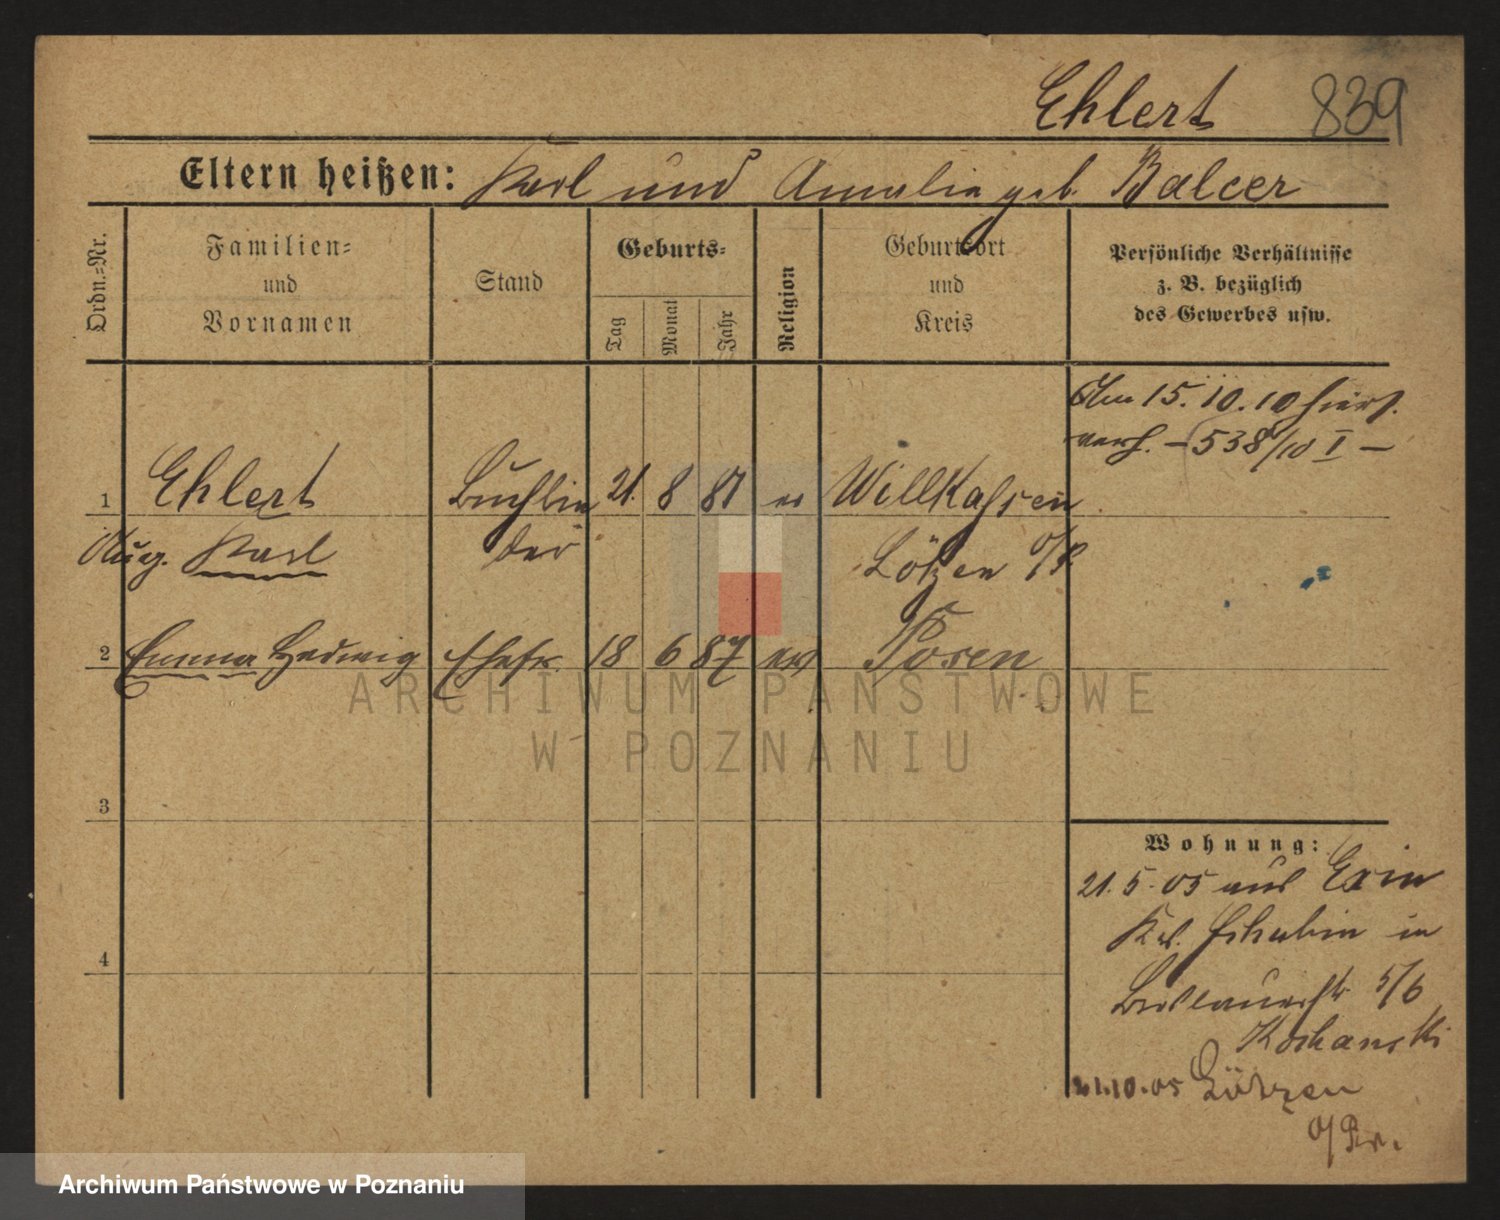 Ehlert 839
Eltern heißen: Karl und Amalie geb. Balcer
Ordn.=Nr.
Familien=
und
Vornamen
Stand
Geburts=
Tag
Monat
Jahr
Religion
Geburtsort
und
Kreis
Persönliche Verhältnisse
z. B. bezüglich
des Gewerbes usw.
Am 15.10.10 hier
verh. – 538/10 I –
1 Ehlert Buchbin 21. 8 81 ev Willkassen
Aug. Karl der Lötzen O/P.
2 Emma Hedwig Ehefr. 18 6 87 ev Posen
3
4
ARCHIWUM PAŃSTWOWE
W POZNANIU
Wohnung:
21.5.05 aus Exin
Kr. Schubin in
Breslauerstr. 5/6
Kochanski
21.10.05 Lötzen
O/Pr.
Archiwum Państwowe w Poznaniu